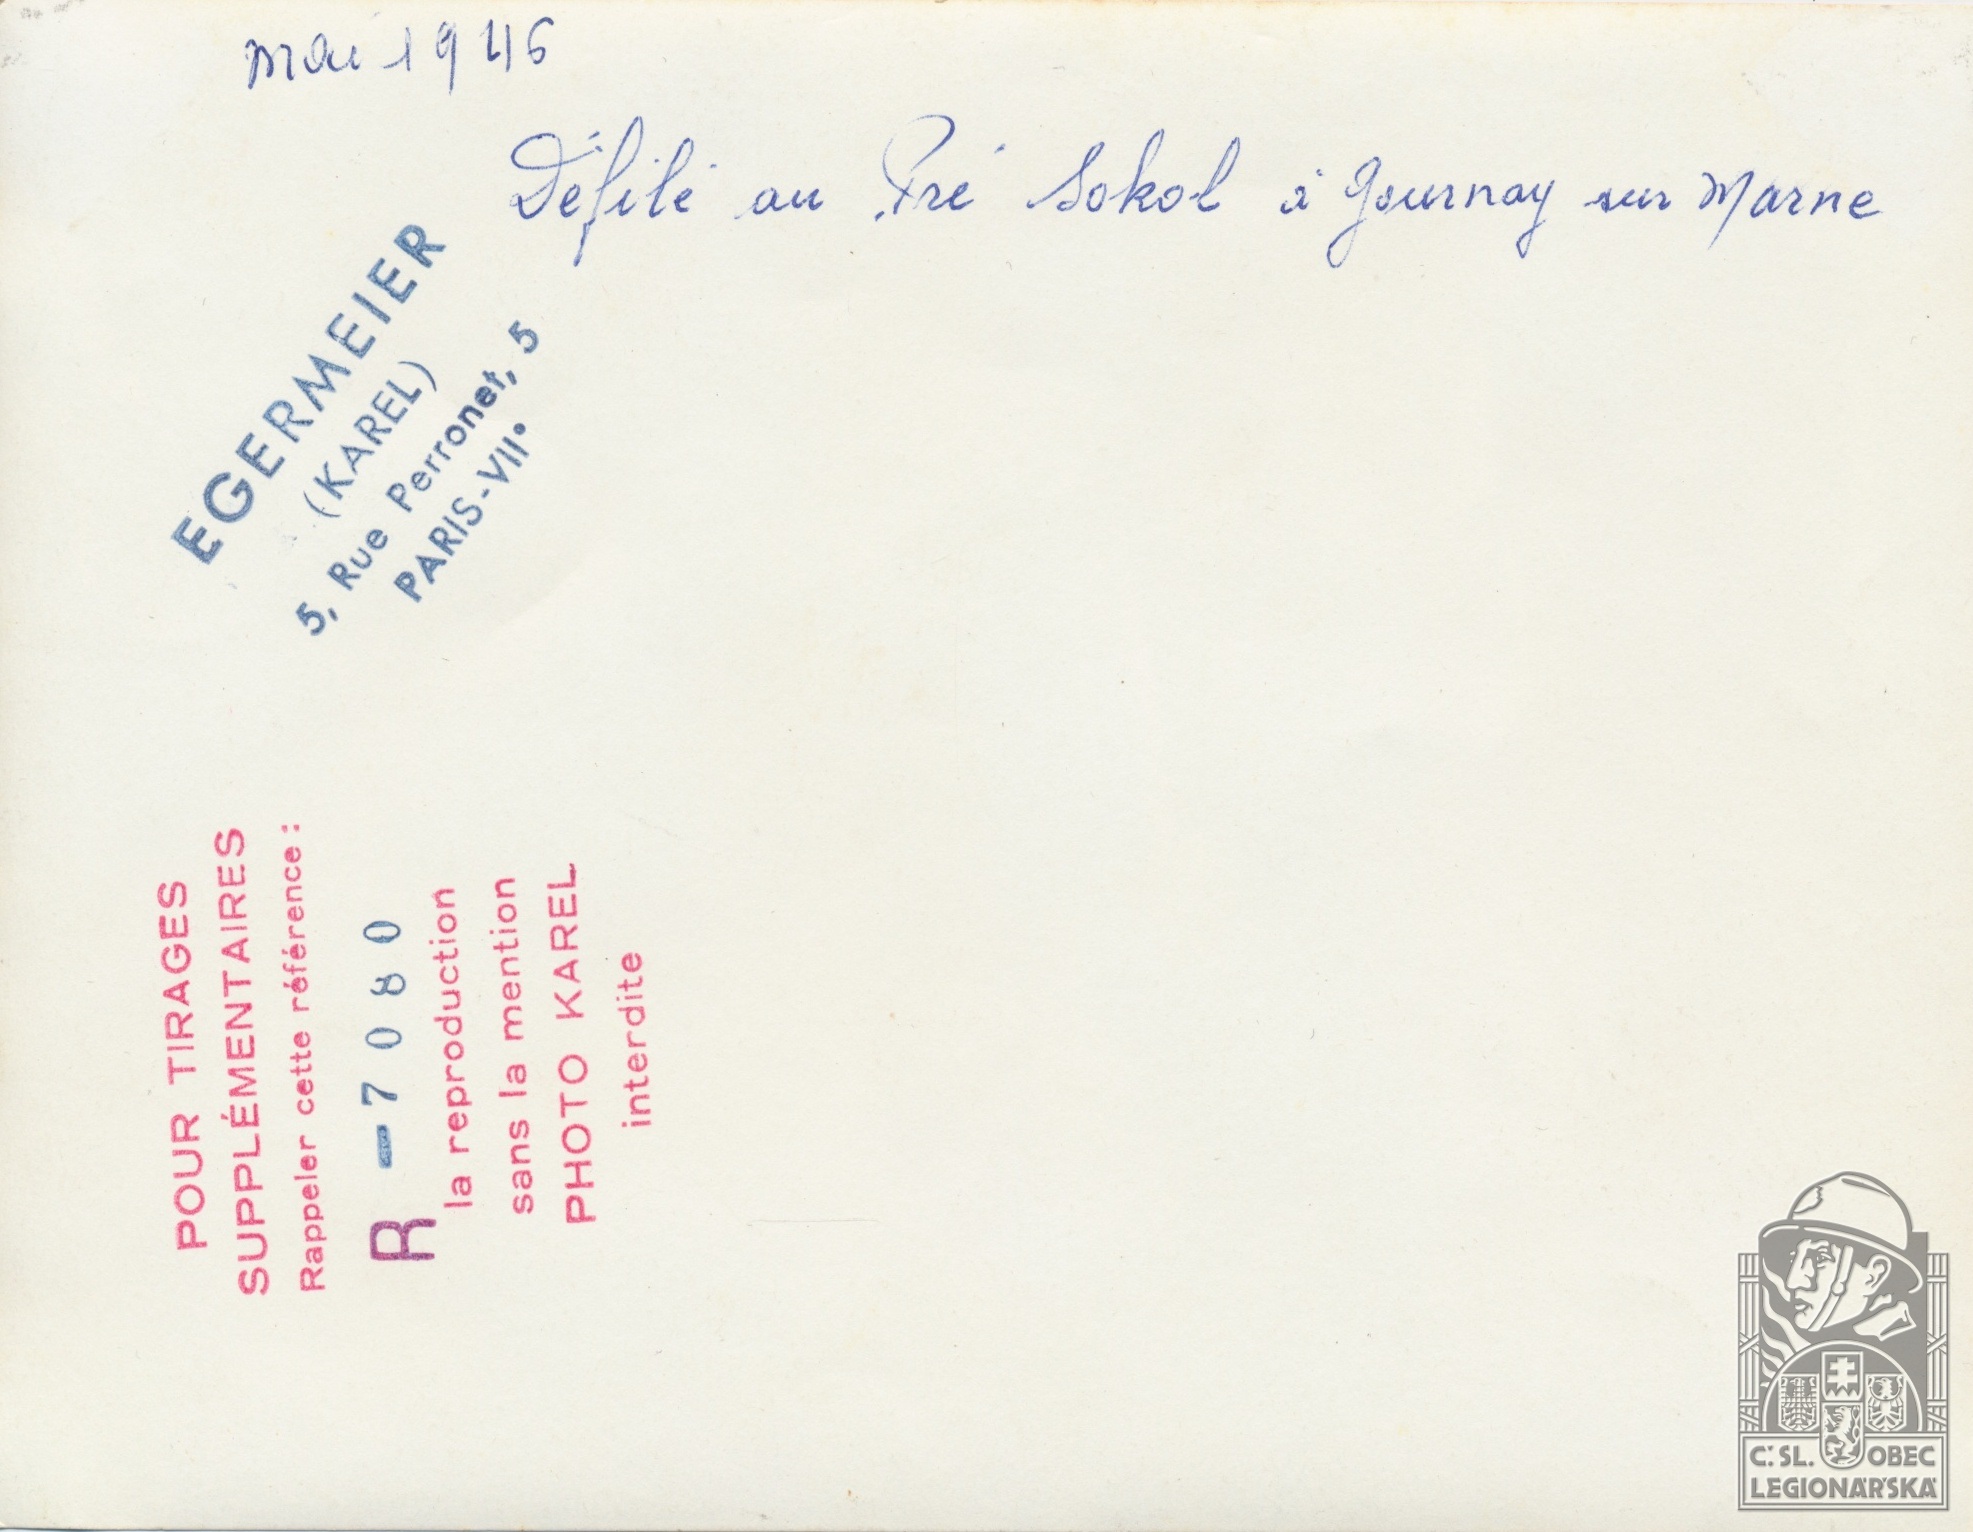 mai 1946
Défilé au Pré Sokol à Gournay sur Marne
EGERMEIER
(KAREL)
5, Rue Perronet, 5
PARIS-VIIe
POUR TIRAGES
SUPPLÉMENTAIRES
Rappeler cette référence :
R - 7080
la reproduction
sans la mention
PHOTO KAREL
interdite
Č.SL. OBEC
LEGIONÁŘSKÁ